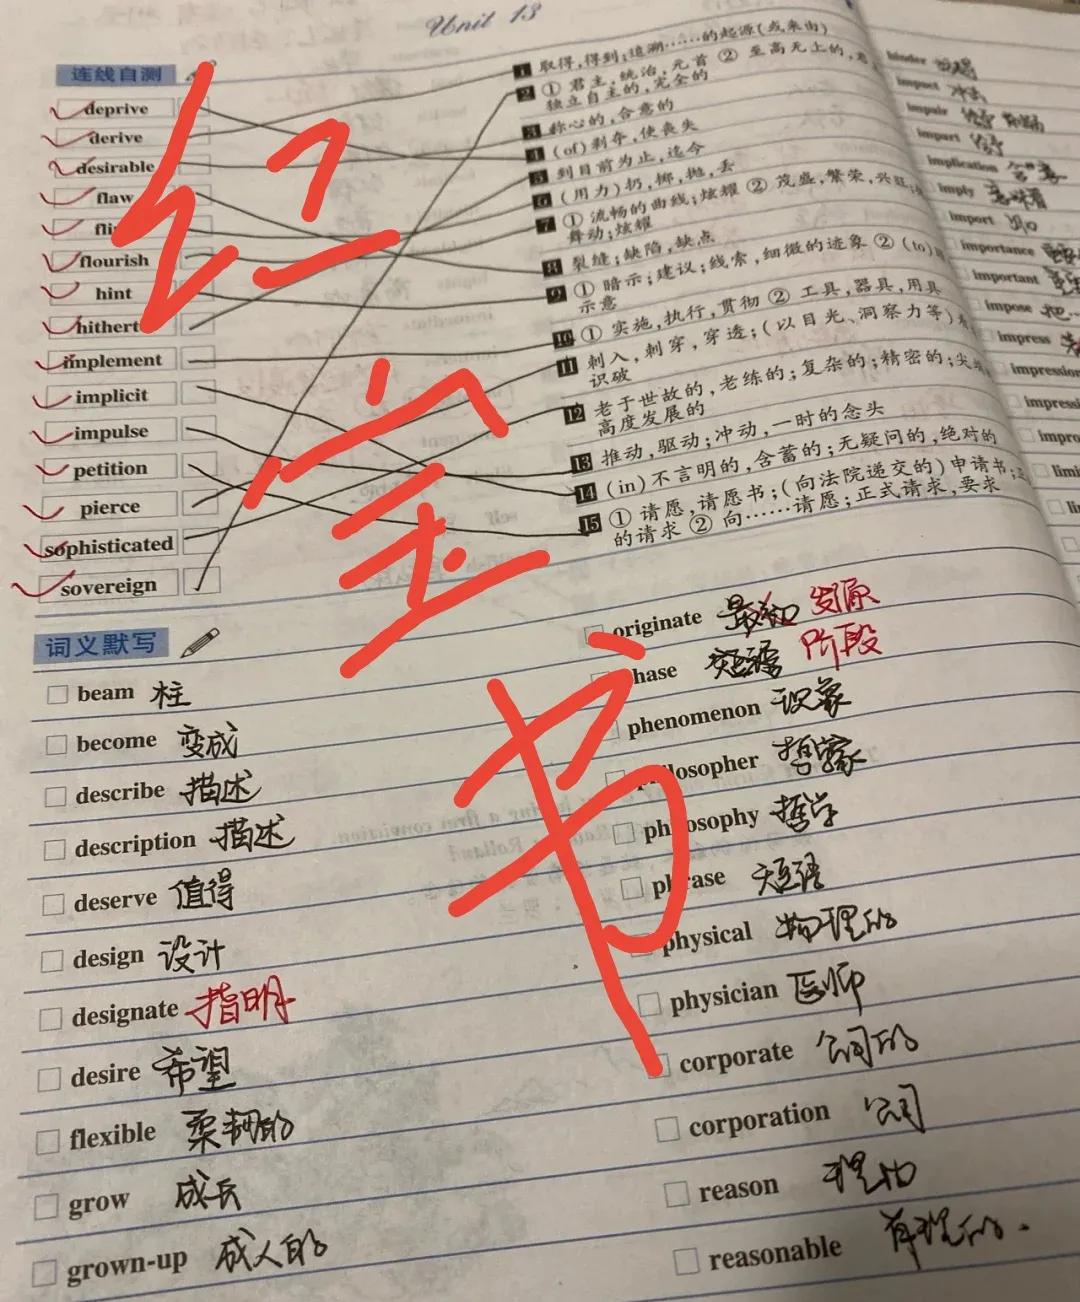 Unit 13
连线自测
deprive
derive
desirable
flaw
flourish
hint
implement
implicit
impulse
petition
pierce
sophisticated
sovereign
1 取得,得到;追溯……的起源(或来由)
2 ① 君主,统治,元首 ② 至高无上的,
独立自主的,完全的
3 称心的,合意的
4 (of)剥夺,使丧失
5 到目前为止,迄今
6 (用力)扔,掷,抛,丢
7 ① 流畅的曲线;炫耀 ② 茂盛,繁荣,兴旺;
舞动;炫耀
8 裂缝;缺陷,缺点
9 ① 暗示;建议;线索,细微的迹象 ② (to)
示意
10 ① 实施,执行,贯彻 ② 工具,器具,用具
11 刺入,刺穿,穿透;(以目光、洞察力等)
识破
12 老于世故的,老练的;复杂的;精密的;尖
高度发展的
13 推动,驱动;冲动,一时的念头
14 (in)不言明的,含蓄的;无疑问的,绝对的
15 ① 请愿,请愿书;(向法院递交的)申请书;
的请求 ② 向……请愿;正式请求,要求
红宝书
词义默写
beam 柱
become 变成
describe 描述
description 描述
deserve 值得
design 设计
designate 指明
desire 希望
flexible 柔韧的
grow 成长
grown-up 成人的
originate 最初 发源
hase 短语 阶段
phenomenon 现象
philosopher 哲学家
philosophy 哲学
phrase 短语
physical 物理的
physician 医师
corporate 公司的
corporation 公司
reason 理由
reasonable 有理的.
impact 冲击
impair
impart
implication 含意
imply 意味着
import 进口
importance
important
impose
impress
impression